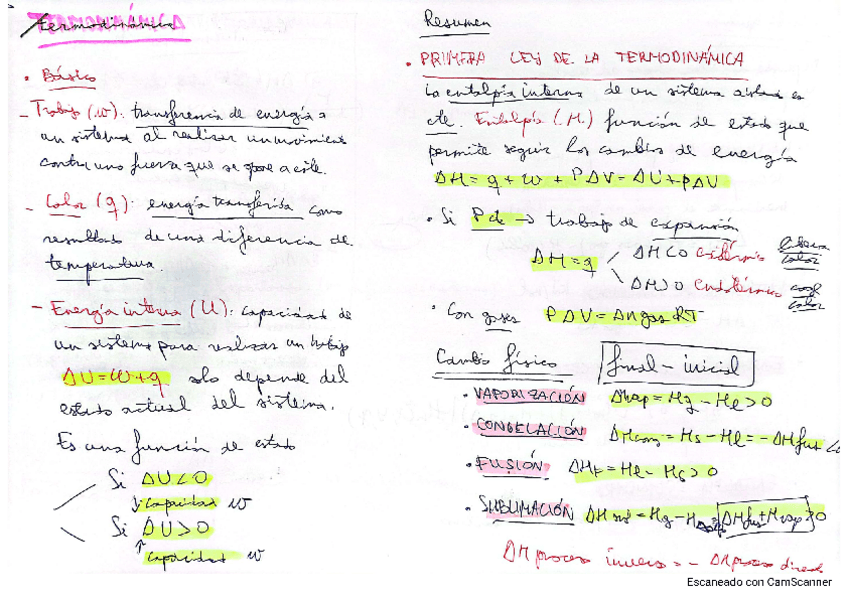 Termodinámica
• Básico
- Trabajo (w): transferencia de energía a
un sistema al realizar un movimiento
contra una fuerza que se opone a este.
- Calor (q): energía transferida como
resultado de una diferencia de
temperatura.
- Energía interna (U): capacidad de
un sistema para realizar un trabajo
ΔU=W+q solo depende del
estado actual del sistema.
Es una función de estado
Si ΔU<0
↓capacidad w
Si ΔU>0
↑capacidad w
Resumen
• PRIMERA LEY DE LA TERMODINÁMICA
La entalpía interna de un sistema aislado es
cte. Entalpía (H) función de estado que
permite seguir los cambios de energía
ΔH = q + w + PΔV = ΔU+PΔV
• Si P cte → trabajo de expansión
ΔH = q
ΔH<0 exotérmico libera calor
ΔH>0 endotérmico coge calor
• Con gases PΔV = Δngas RT
Cambio físico final - inicial
• VAPORIZACIÓN ΔHvap = Hg - Hl > 0
• CONGELACIÓN ΔHcong = Hs - Hl = - ΔHfus <0
• FUSIÓN ΔHf = Hl - Hs > 0
• SUBLIMACIÓN ΔHsub = Hg - Hs ΔHfus + Hvap > 0
ΔH proceso inverso = - ΔH proceso direct
Escaneado con CamScanner